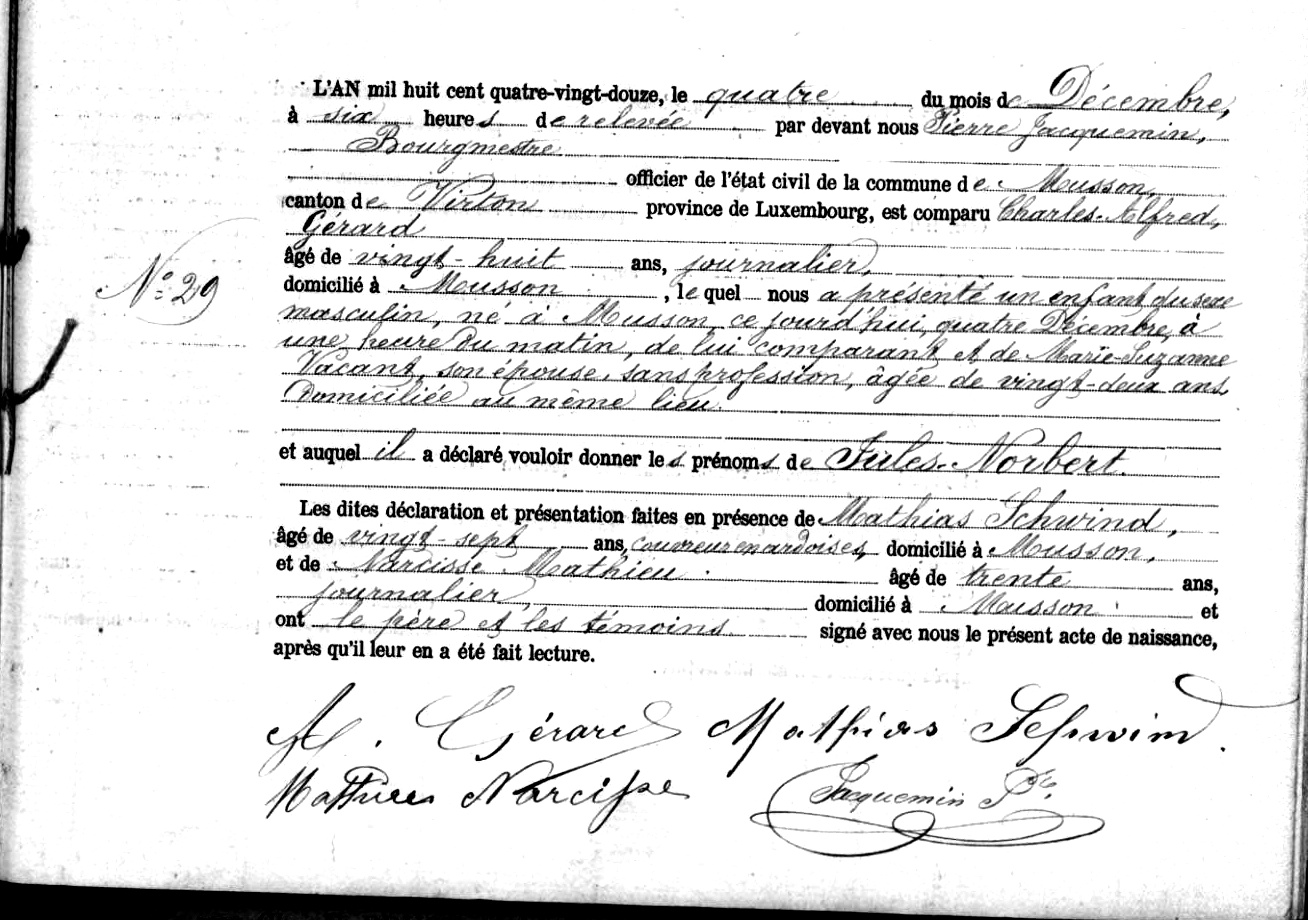 L'AN mil huit cent quatre-vingt-douze, le quatre du mois de Décembre,
à six heures de relevée par devant nous Pierre Jacquemin,
Bourgmestre
officier de l'état civil de la commune de Musson,
canton de Virton province de Luxembourg, est comparu Charles-Alfred,
Gérard
âgé de vingt-huit ans, journalier,
N° 29
domicilié à Musson, lequel nous a présenté un enfant du sexe
masculin, né à Musson, ce jourd'hui, quatre Décembre, à
une heure du matin, de lui comparant et de Marie-Suzanne
Vacant, son épouse, sans profession, âgée de vingt-deux ans,
domiciliée au même lieu.
et auquel il a déclaré vouloir donner les prénoms de Jules-Norbert.
Les dites déclaration et présentation faites en présence de Mathias Schwind,
âgé de vingt-sept ans, couvreur en ardoises, domicilié à Musson,
et de Narcisse Mathieu. âgé de trente ans,
journalier, domicilié à Musson et
ont le père et les témoins signé avec nous le présent acte de naissance,
après qu'il leur en a été fait lecture.
A. Gérard Mathias Schwind.
Mathieu Narcisse Jacquemin Pre.